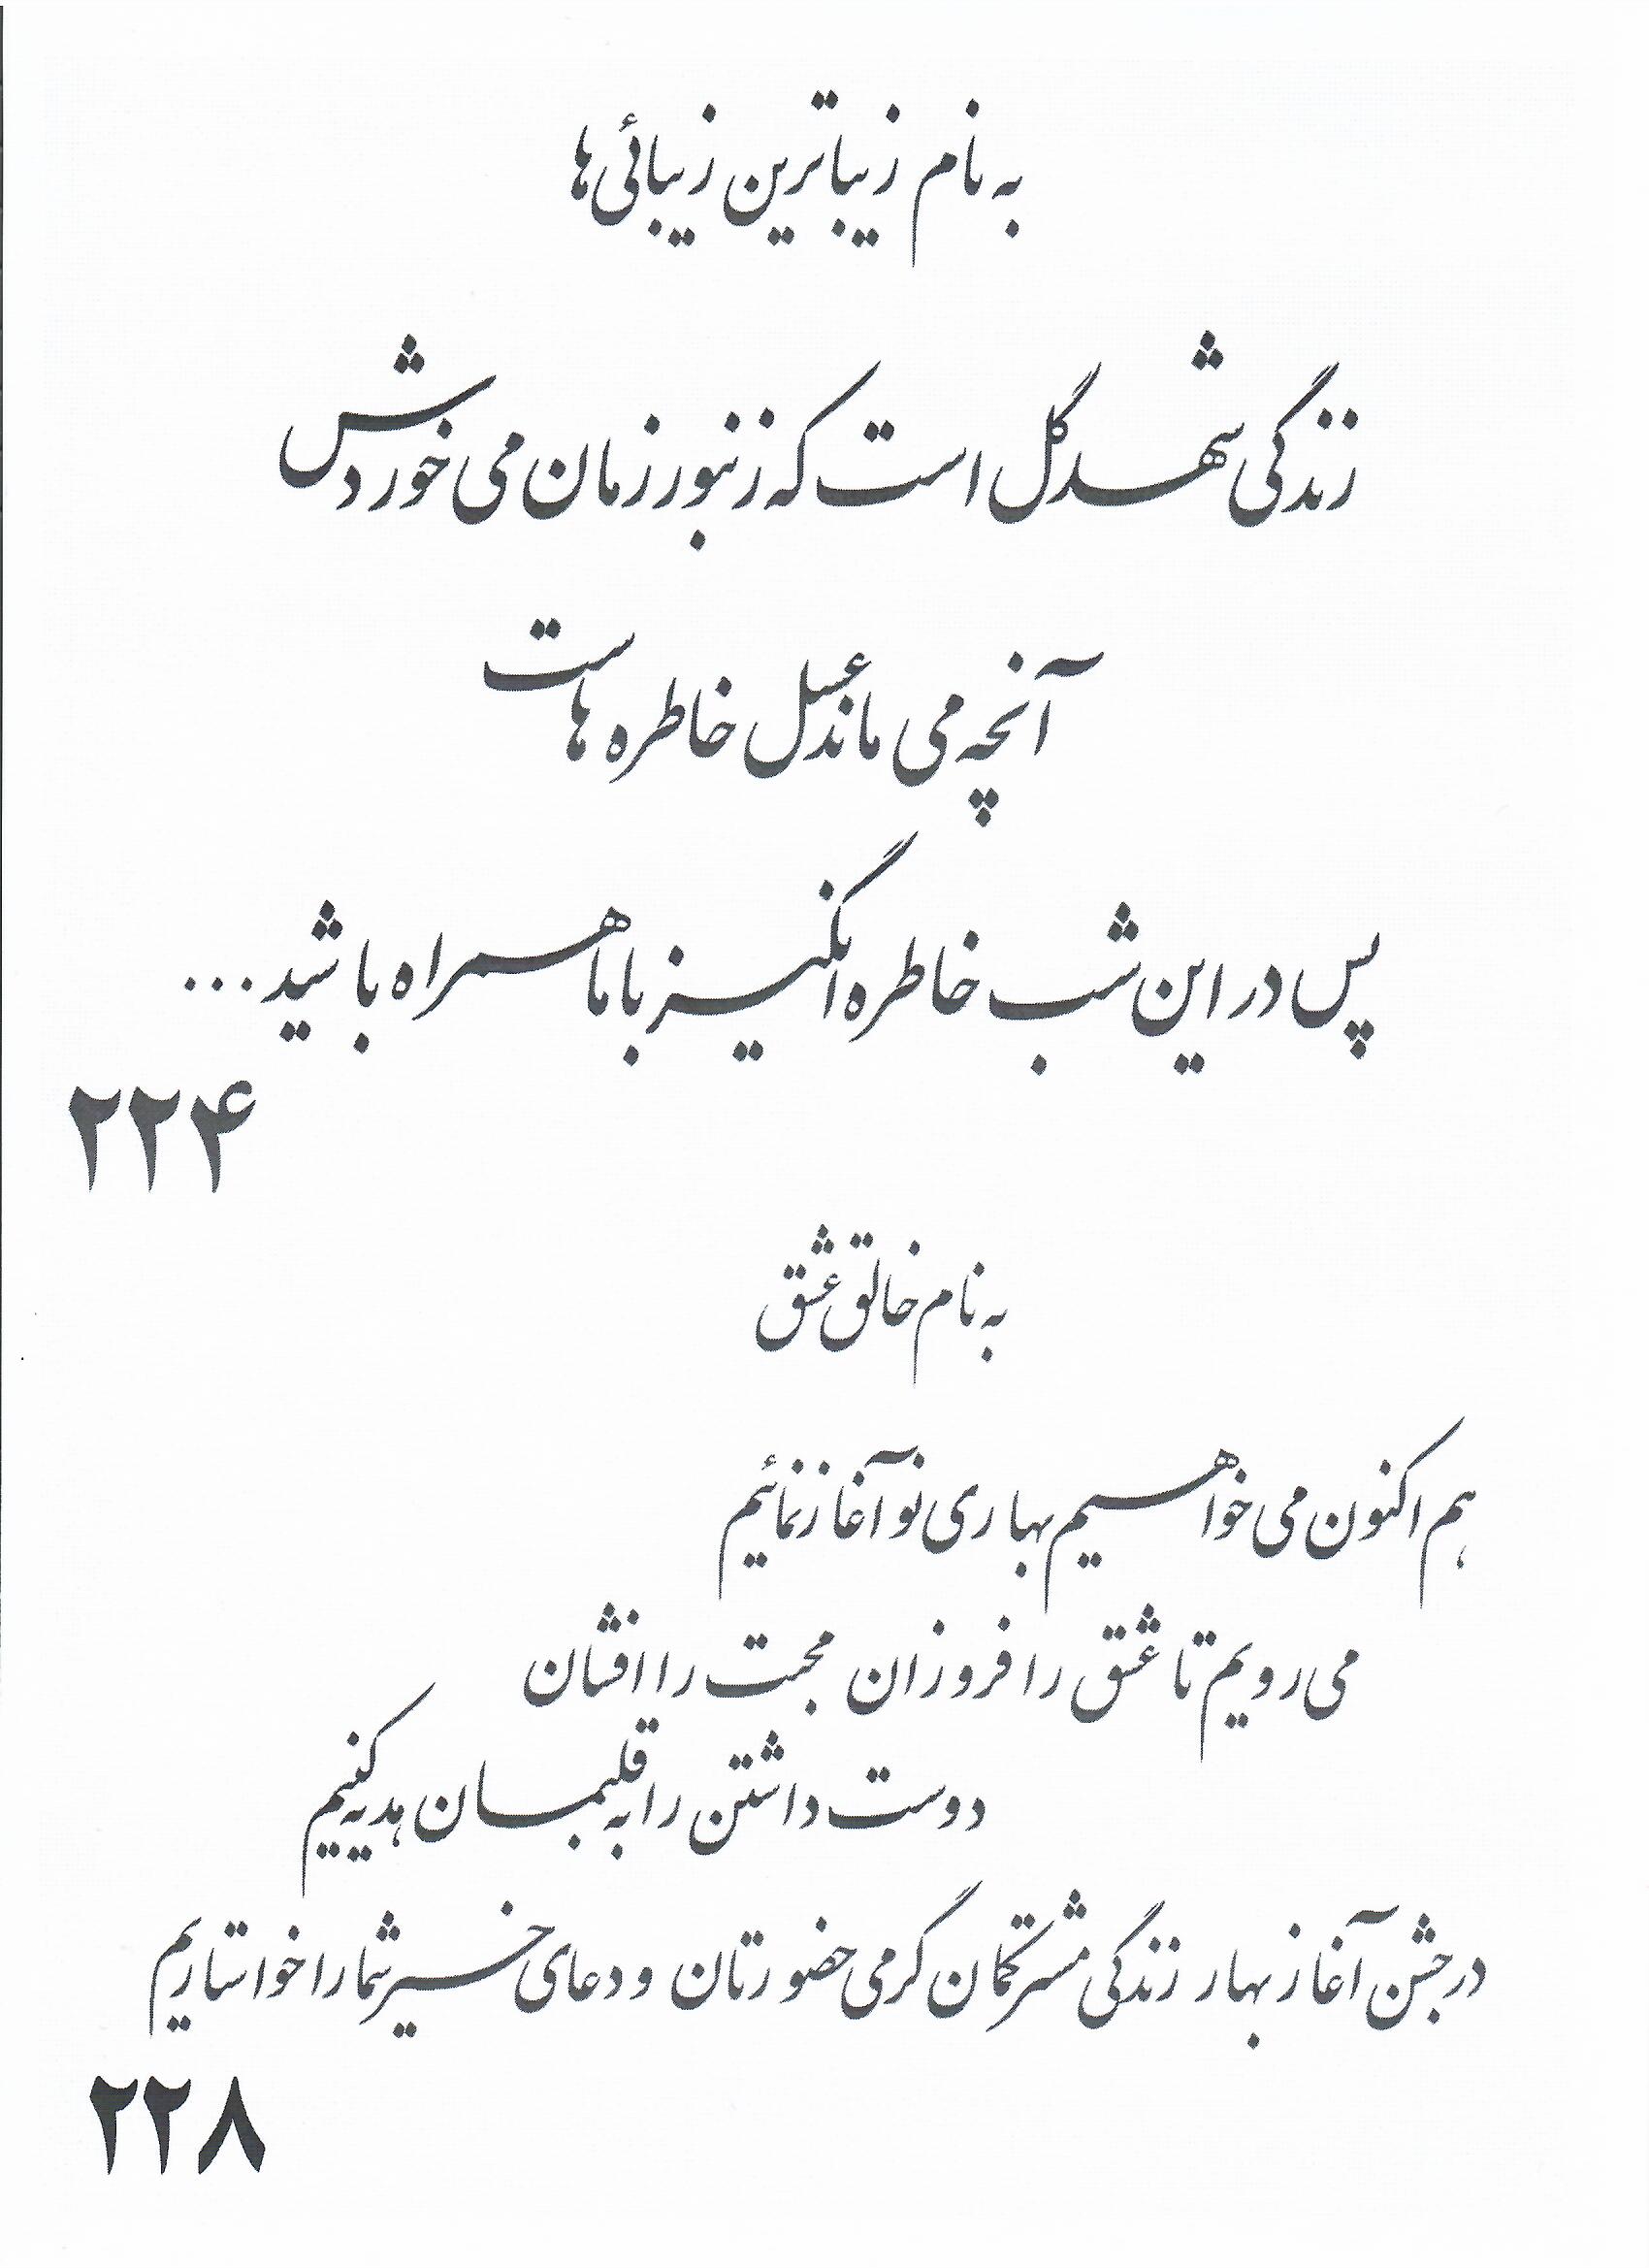 به نام زیباترین زیبائی ها
زندگی شهد گل است که زنبور زمان می خوردش
آنچه می ماند عسل خاطره هاست
پس در این شب خاطره انگیز با ما همراه باشید ...
۲۲۴
به نام خالق عشق
هم اکنون می خواهیم بهاری نو آغاز نمائیم
می رویم تا عشق را فروزان محبت را افشان
دوست داشتن را به قلبمان هدیه کنیم
در جشن آغاز بهار زندگی مشترکمان گرمی حضورتان و دعای خیر شما را خواستاریم
۲۲۸